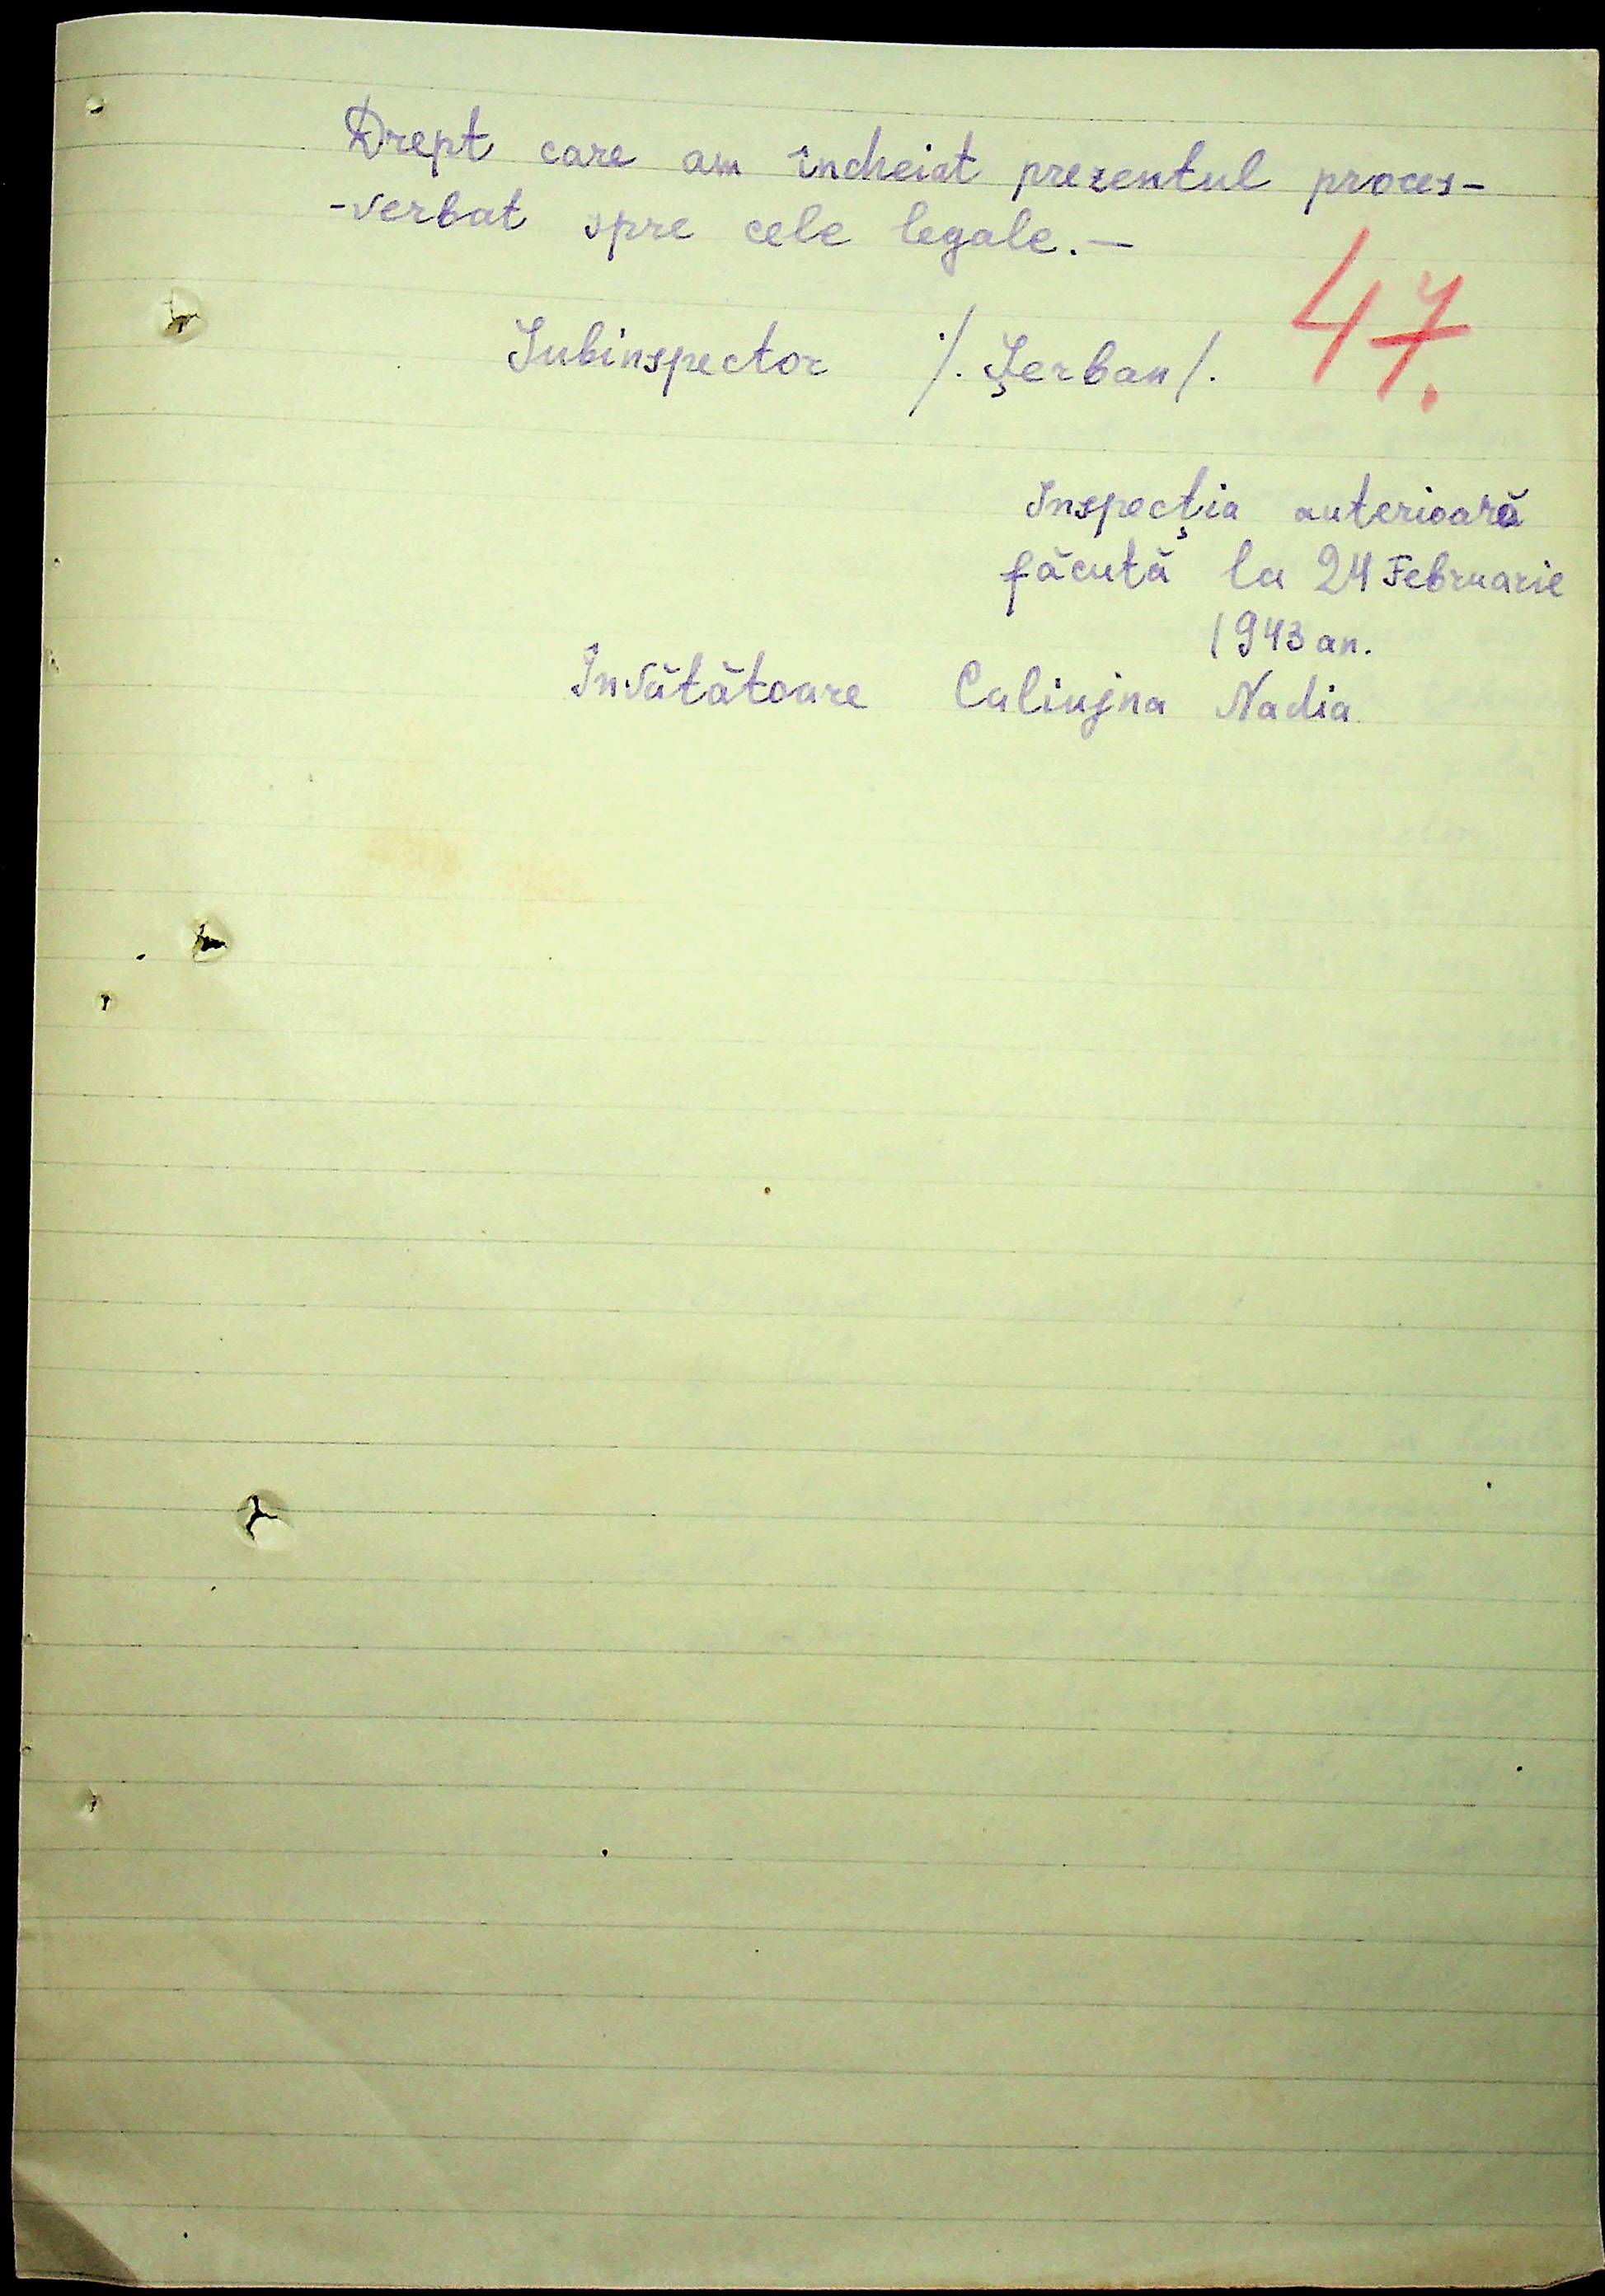 Drept care am încheiat prezentul proces-
-verbat spre cele legale.—
47.
Subinspector /. Șerban/.
Inspecția anterioară
făcută la 24 Februarie
1943 an.
Învătătoare Caliujna Nadia